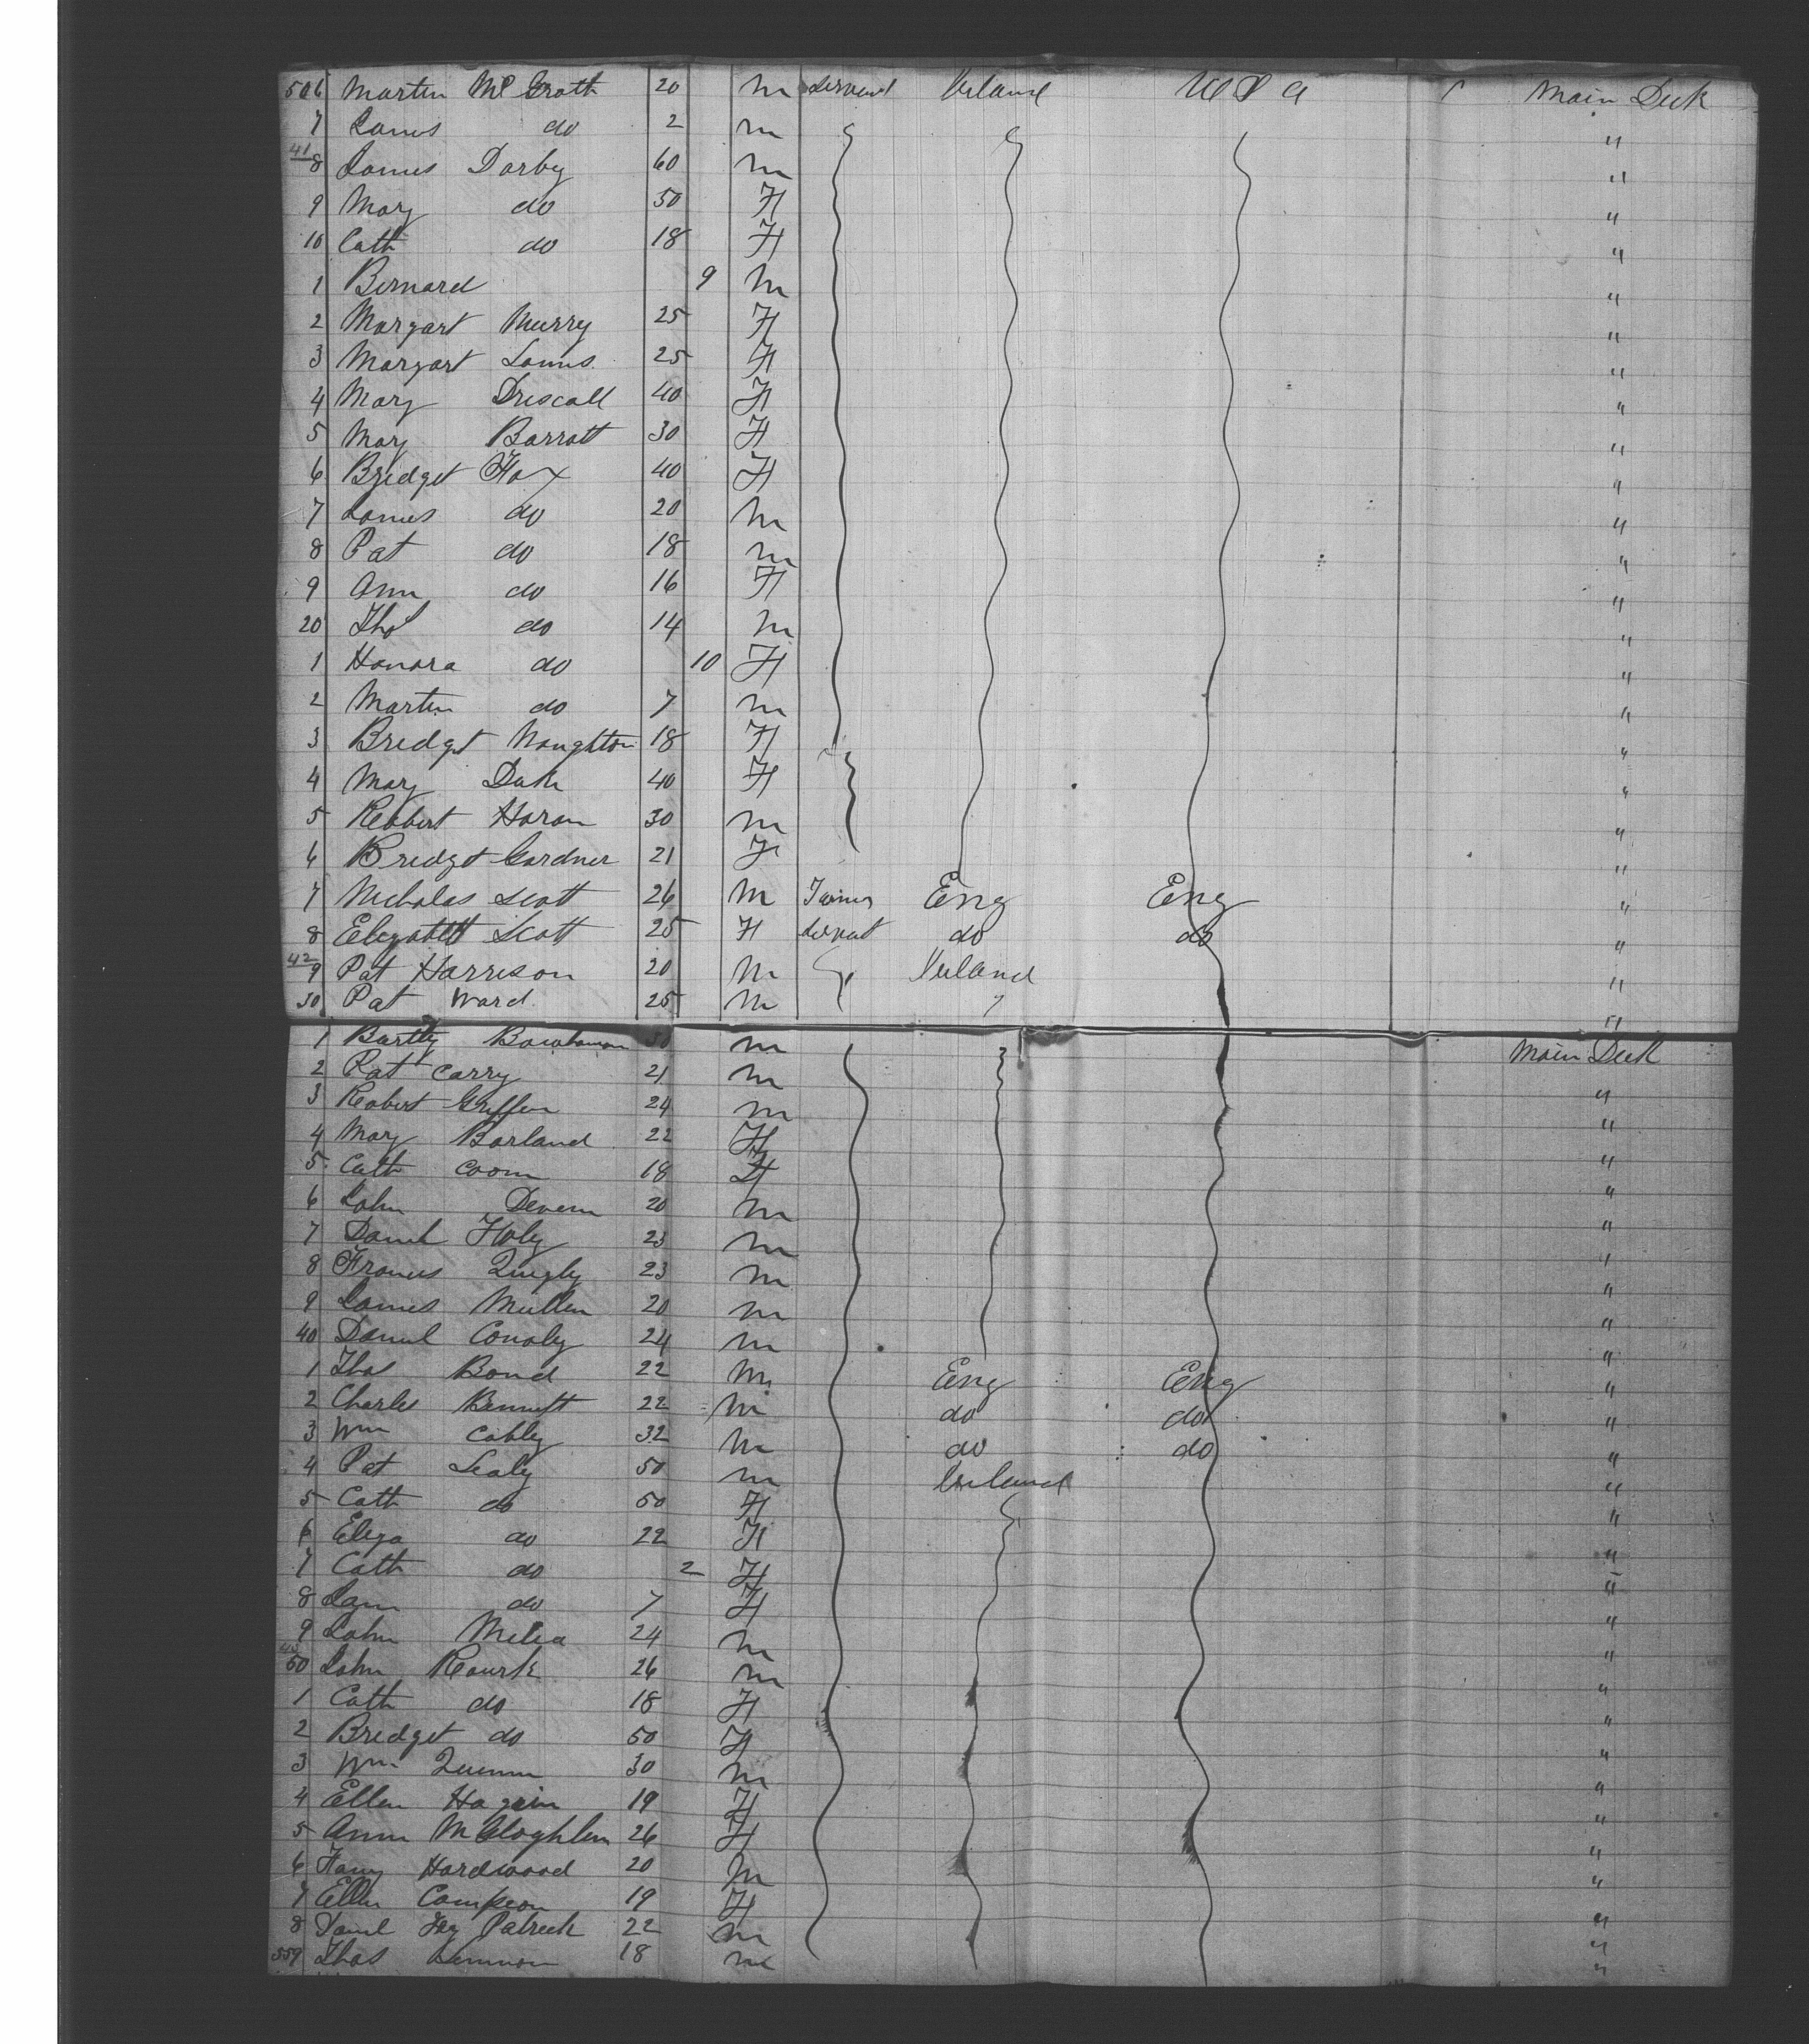 506 Martin McGrath 20 m Servant Ireland U S A Main Deck
7 James do 2 m "
41
8 James Darby 60 m "
9 Mary do 50 F "
10 Cath do 18 F "
1 Bernard 9 m "
2 Margart Murry 25 F "
3 Margart 25 F "
4 Mary Driscall 40 F "
5 Mary Barratt 30 F "
6 Bridget Fox 40 F "
7 James do 20 m "
8 Pat do 18 m "
9 Ann do 16 F "
20 Thos do 14 m "
1 Hanora do 10 F "
2 Martin do 7 m "
3 Bridgt Naughton 18 F "
4 Mary 40 F "
5 Robert Haran 30 m "
6 Bridgt Gardner 21 F "
7 Nicholas Scott 26 m Eng Eng "
8 Elizabeth Scott 25 F Servant do do "
42
9 Pat Harrison 20 m Ireland "
30 Pat Ward 25 m "
1 Bartly 30 m Main Deck
2 Pat Carry 21 m "
3 Robert Griffin 24 m "
4 Mary Borland 22 F "
5 Cath 18 F "
6 John 20 m "
7 Daniel Foley 23 m "
8 Francis Quigly 23 m "
9 James Mullen 20 m "
40 Daniel Conoly 24 m "
1 Thos Bond 22 m Eng Eng "
2 Charles Bennett 22 m do do "
3 Wm Cobley 32 m do do "
4 Pat 50 m Ireland "
5 Cath do 50 F "
6 Eliza do 22 F "
7 Cath do 2 F "
8 Jane do 7 F "
9 John 24 m "
50 John Rourk 26 m "
1 Cath do 18 F "
2 Bridget do 50 F "
3 Wm 30 m "
4 Ellen 19 F "
5 Ann McGloghlen 26 F "
6 Hardwood 20 m "
7 Ellen 19 F "
8 Danl Fitz Patrick 22 m "
559 Thos 18 m "